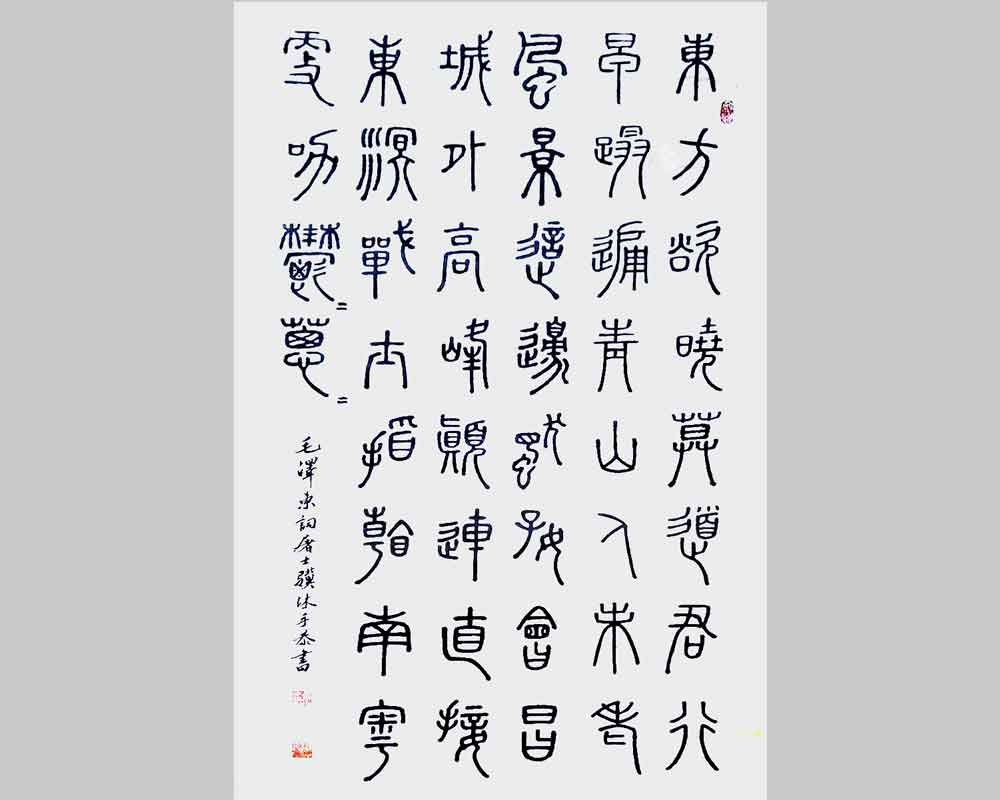 東方欲曉莫道君行
早蹋遍青山人未老
風景這邊獨好會昌
城外高峰顛連直接
東溟戰士指看南粵
更加鬱=蔥=
毛澤東詞屠士驥沐手恭書